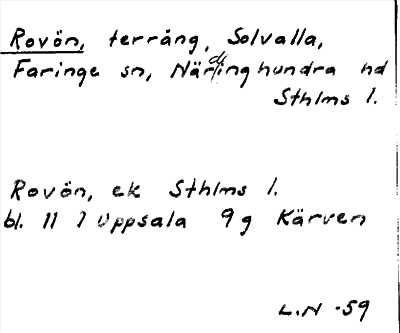 Rovön, terräng, Solvalla,
Faringe sn, Närdinghundra hd
Sthlms l.
Rovön, ek Sthlms l.
bl. 11 I Uppsala 9g Kärven
L.N -59